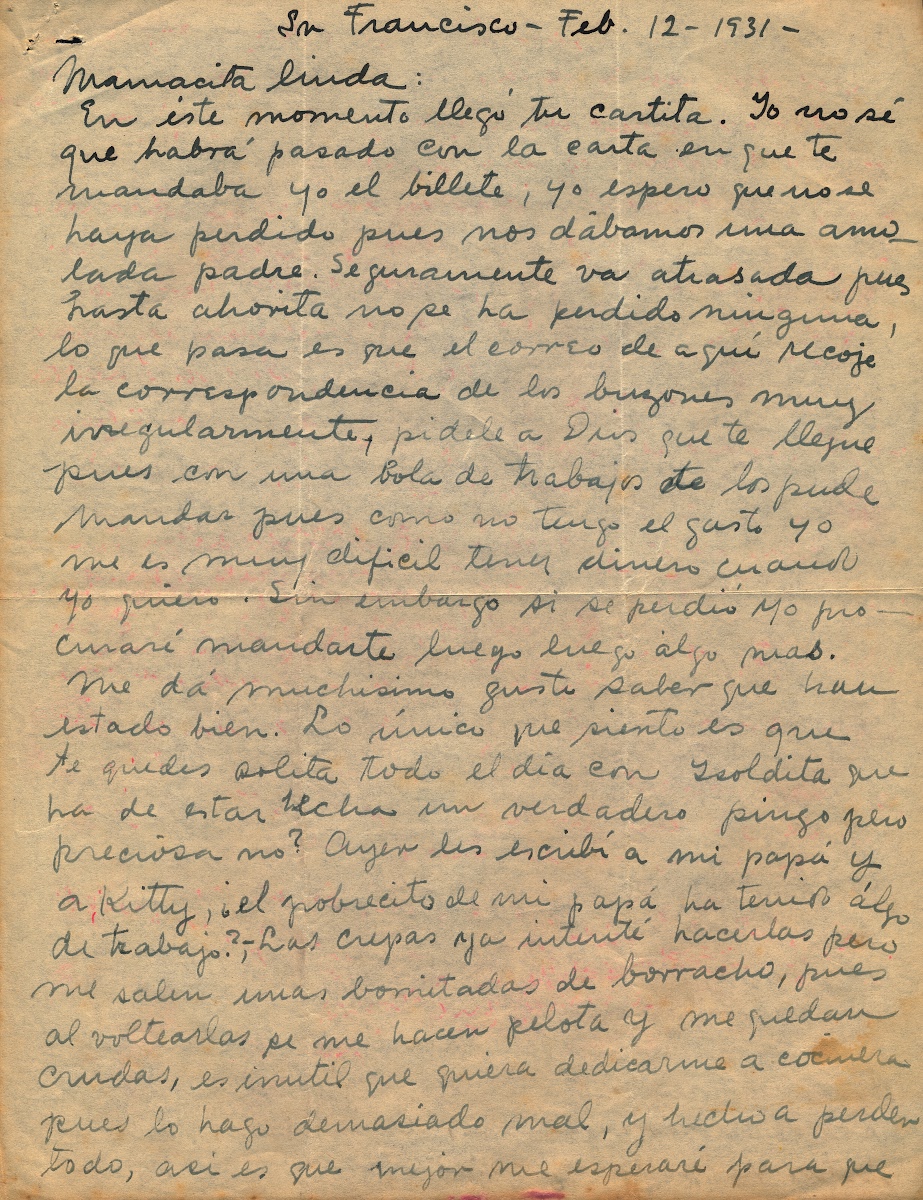 Sn Francisco - Feb. 12 - 1931 -
Mamacita linda:
En éste momento llegó tu cartita. Yo no sé
que habrá pasado con la carta en que te
mandaba yo el billete, yo espero que no se
haya perdido pues nos dábamos una amo-
lada padre. Seguramente va atrasada pues
hasta ahorita no se ha perdido ninguna,
lo que pasa es que el correo de aquí recoje
la correspondencia de los buzones muy
irregularmente, pidele a Dios que te llegue
pues con una bola de trabajos te los pude
mandar pues como no tengo el gasto yo
me es muy dificil tener dinero cuando
yo quiero. Sin embargo si se perdió yo pro-
curaré mandarte luego luego algo mas.
Me dá muchisimo gusto saber que han
estado bien. Lo único que siento es que
te quedes solita todo el día con Isoldita que
ha de estar hecha un verdadero pingo pero
preciosa no? Ayer les escribí a mi papá y
a Kitty, ¿el pobrecito de mi papá ha tenido álgo
de trabajo?; Las crepas ya intenté hacerlas pero
me salen unas bomitadas de borracho, pues
al voltearlas se me hacen pelota y me quedan
crudas, es inutil que quiera dedicarme a cocinera
pues lo hago demasiado mal, y hecho a perder
todo, asi es que mejor me esperaré para que